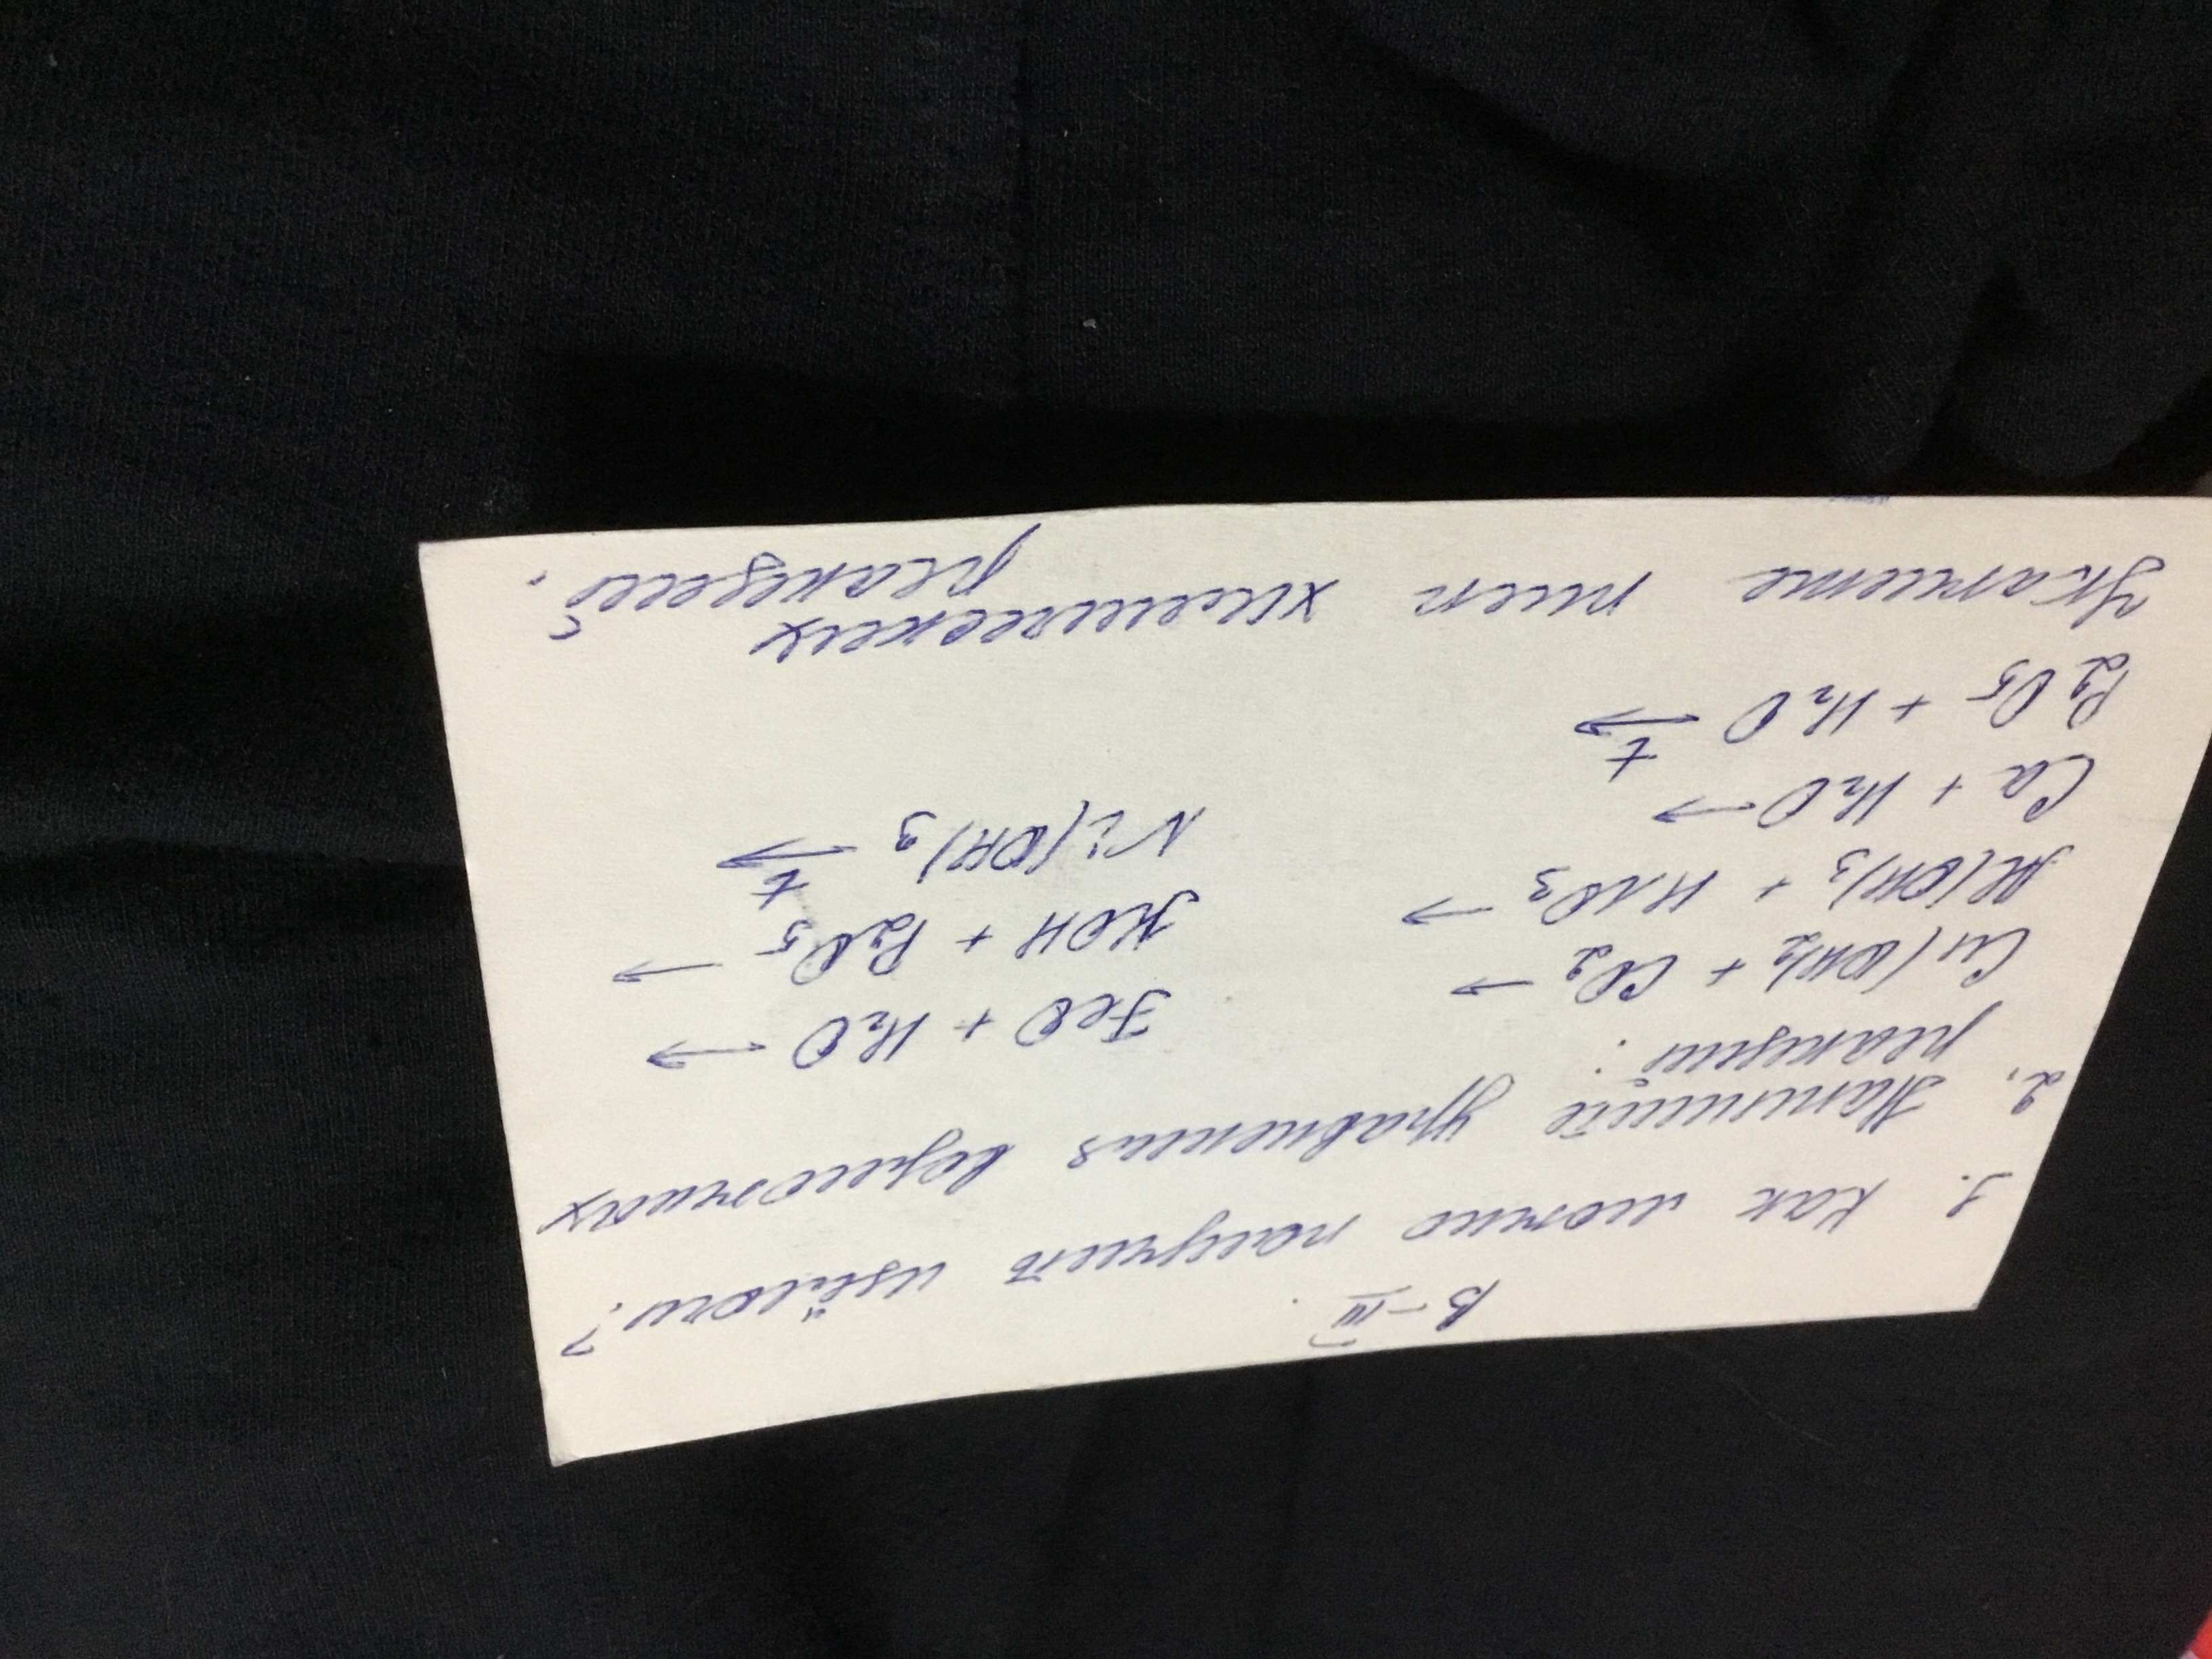 В-III.
1. Как можно получить щёлочи?
2. Напишите уравнения возможных
реакции:
Cu(OH)2 + CO2 →
Al(OH)3 + HNO3 →
Ca + H2O →
P2O5 + H2O t→
FeO + H2O →
KOH + P2O5 →
Ni(OH)3 t→
Укажите тип химических
реакций.